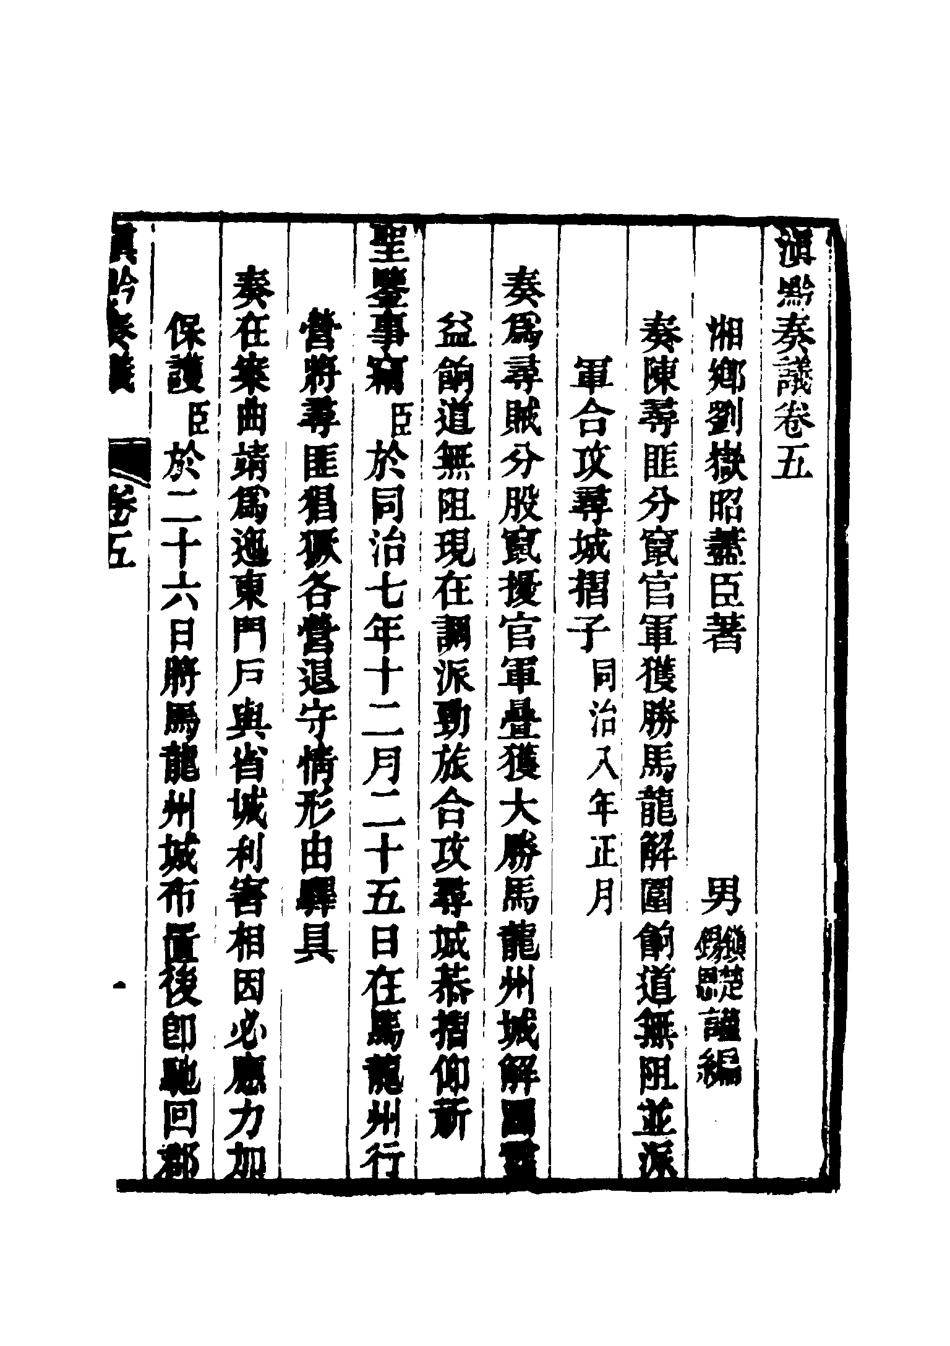 滇黔奏議卷五
湘鄉劉嶽昭藎臣著　男鎮楚錫恩謹編
奏陳尋匪分竄官軍獲勝馬龍解圍餉道無阻並派
軍合攻尋城摺子同治八年正月
奏爲尋賊分股竄擾官軍疊獲大勝馬龍州城解圍霑
益餉道無阻現在調派勁旅合攻尋城恭摺仰祈
聖鑒事竊臣於同治七年十二月二十五日在馬龍州行
營將尋匪猖獗各營退守情形由驛具
奏在案曲靖爲迤東門戶與省城利害相因必應力加
保護臣於二十六日將馬龍州城布置後卽馳回郡
滇黔奏議　卷五